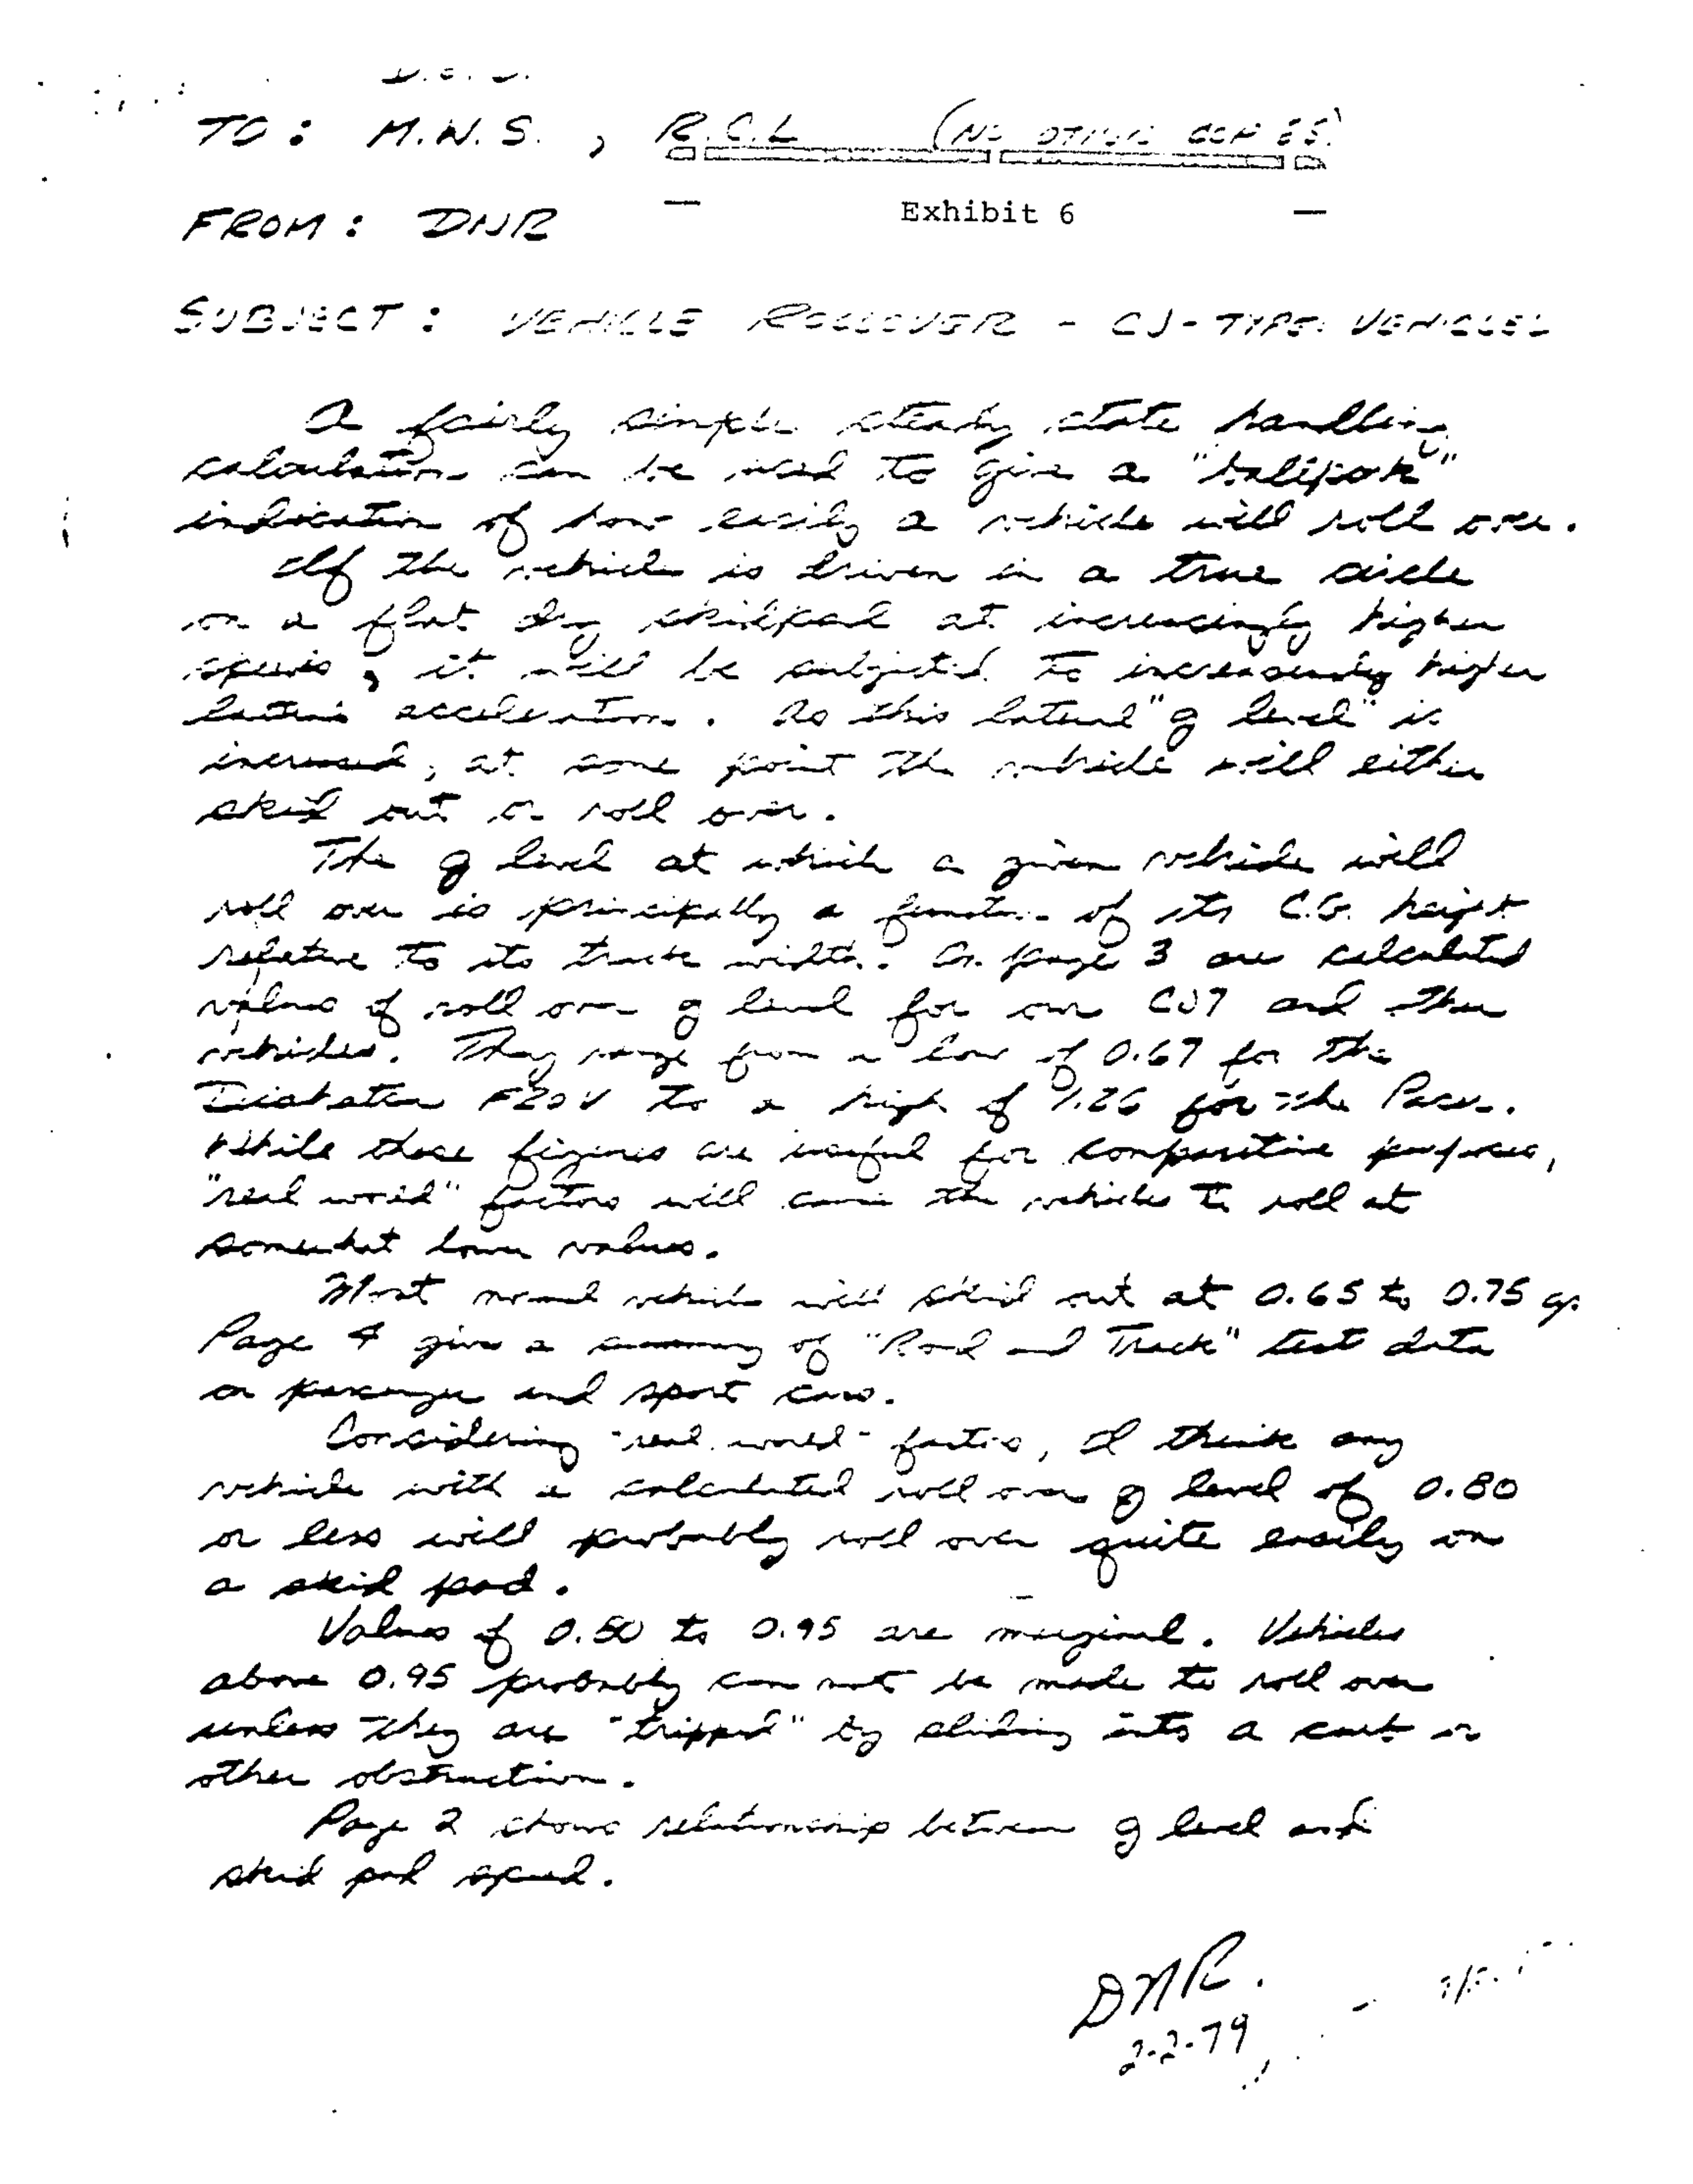 TO: M.W.S., R.C.L (NO OTHER COPIES)
Exhibit 6
FROM: DNR
SUBJECT: VEHICLE ROLLOVER - CJ-TYPE VEHICLES
A fairly simple steady state handling
calculation can be used to give a "ballpark"
indication of how easily a vehicle will roll over.
If the vehicle is driven in a true circle
on a flat dry skidpad at increasingly higher
speeds, it will be subjected to increasingly higher
lateral acceleration. As this lateral "g level" is
increased, at some point the vehicle will either
skid out or roll over.
The g level at which a given vehicle will
roll over is principally a function of its C.G. height
relative to its track width. On page 3 are calculated
values of roll over g level for our CJ7 and other
vehicles. They range from a low of 0.67 for the
F20V to a high of 1.26 for the Pacer.
While these figures are useful for comparative purposes,
"real world" factors will cause the vehicles to roll at
somewhat lower values.
Most normal vehicles will skid out at 0.65 to 0.75 g.
Page 4 gives a summary of "Road and Track" test data
on passenger and sport cars.
Considering "real world" factors, I think any
vehicle with a calculated roll over g level of 0.80
or less will probably roll over quite easily on
a skid pad.
Values of 0.80 to 0.95 are marginal. Vehicles
above 0.95 probably can not be made to roll over
unless they are "tripped" by sliding into a curb or
other obstruction.
Page 2 shows relationship between g level and
skid pad speed.
DNR.
2-2-79